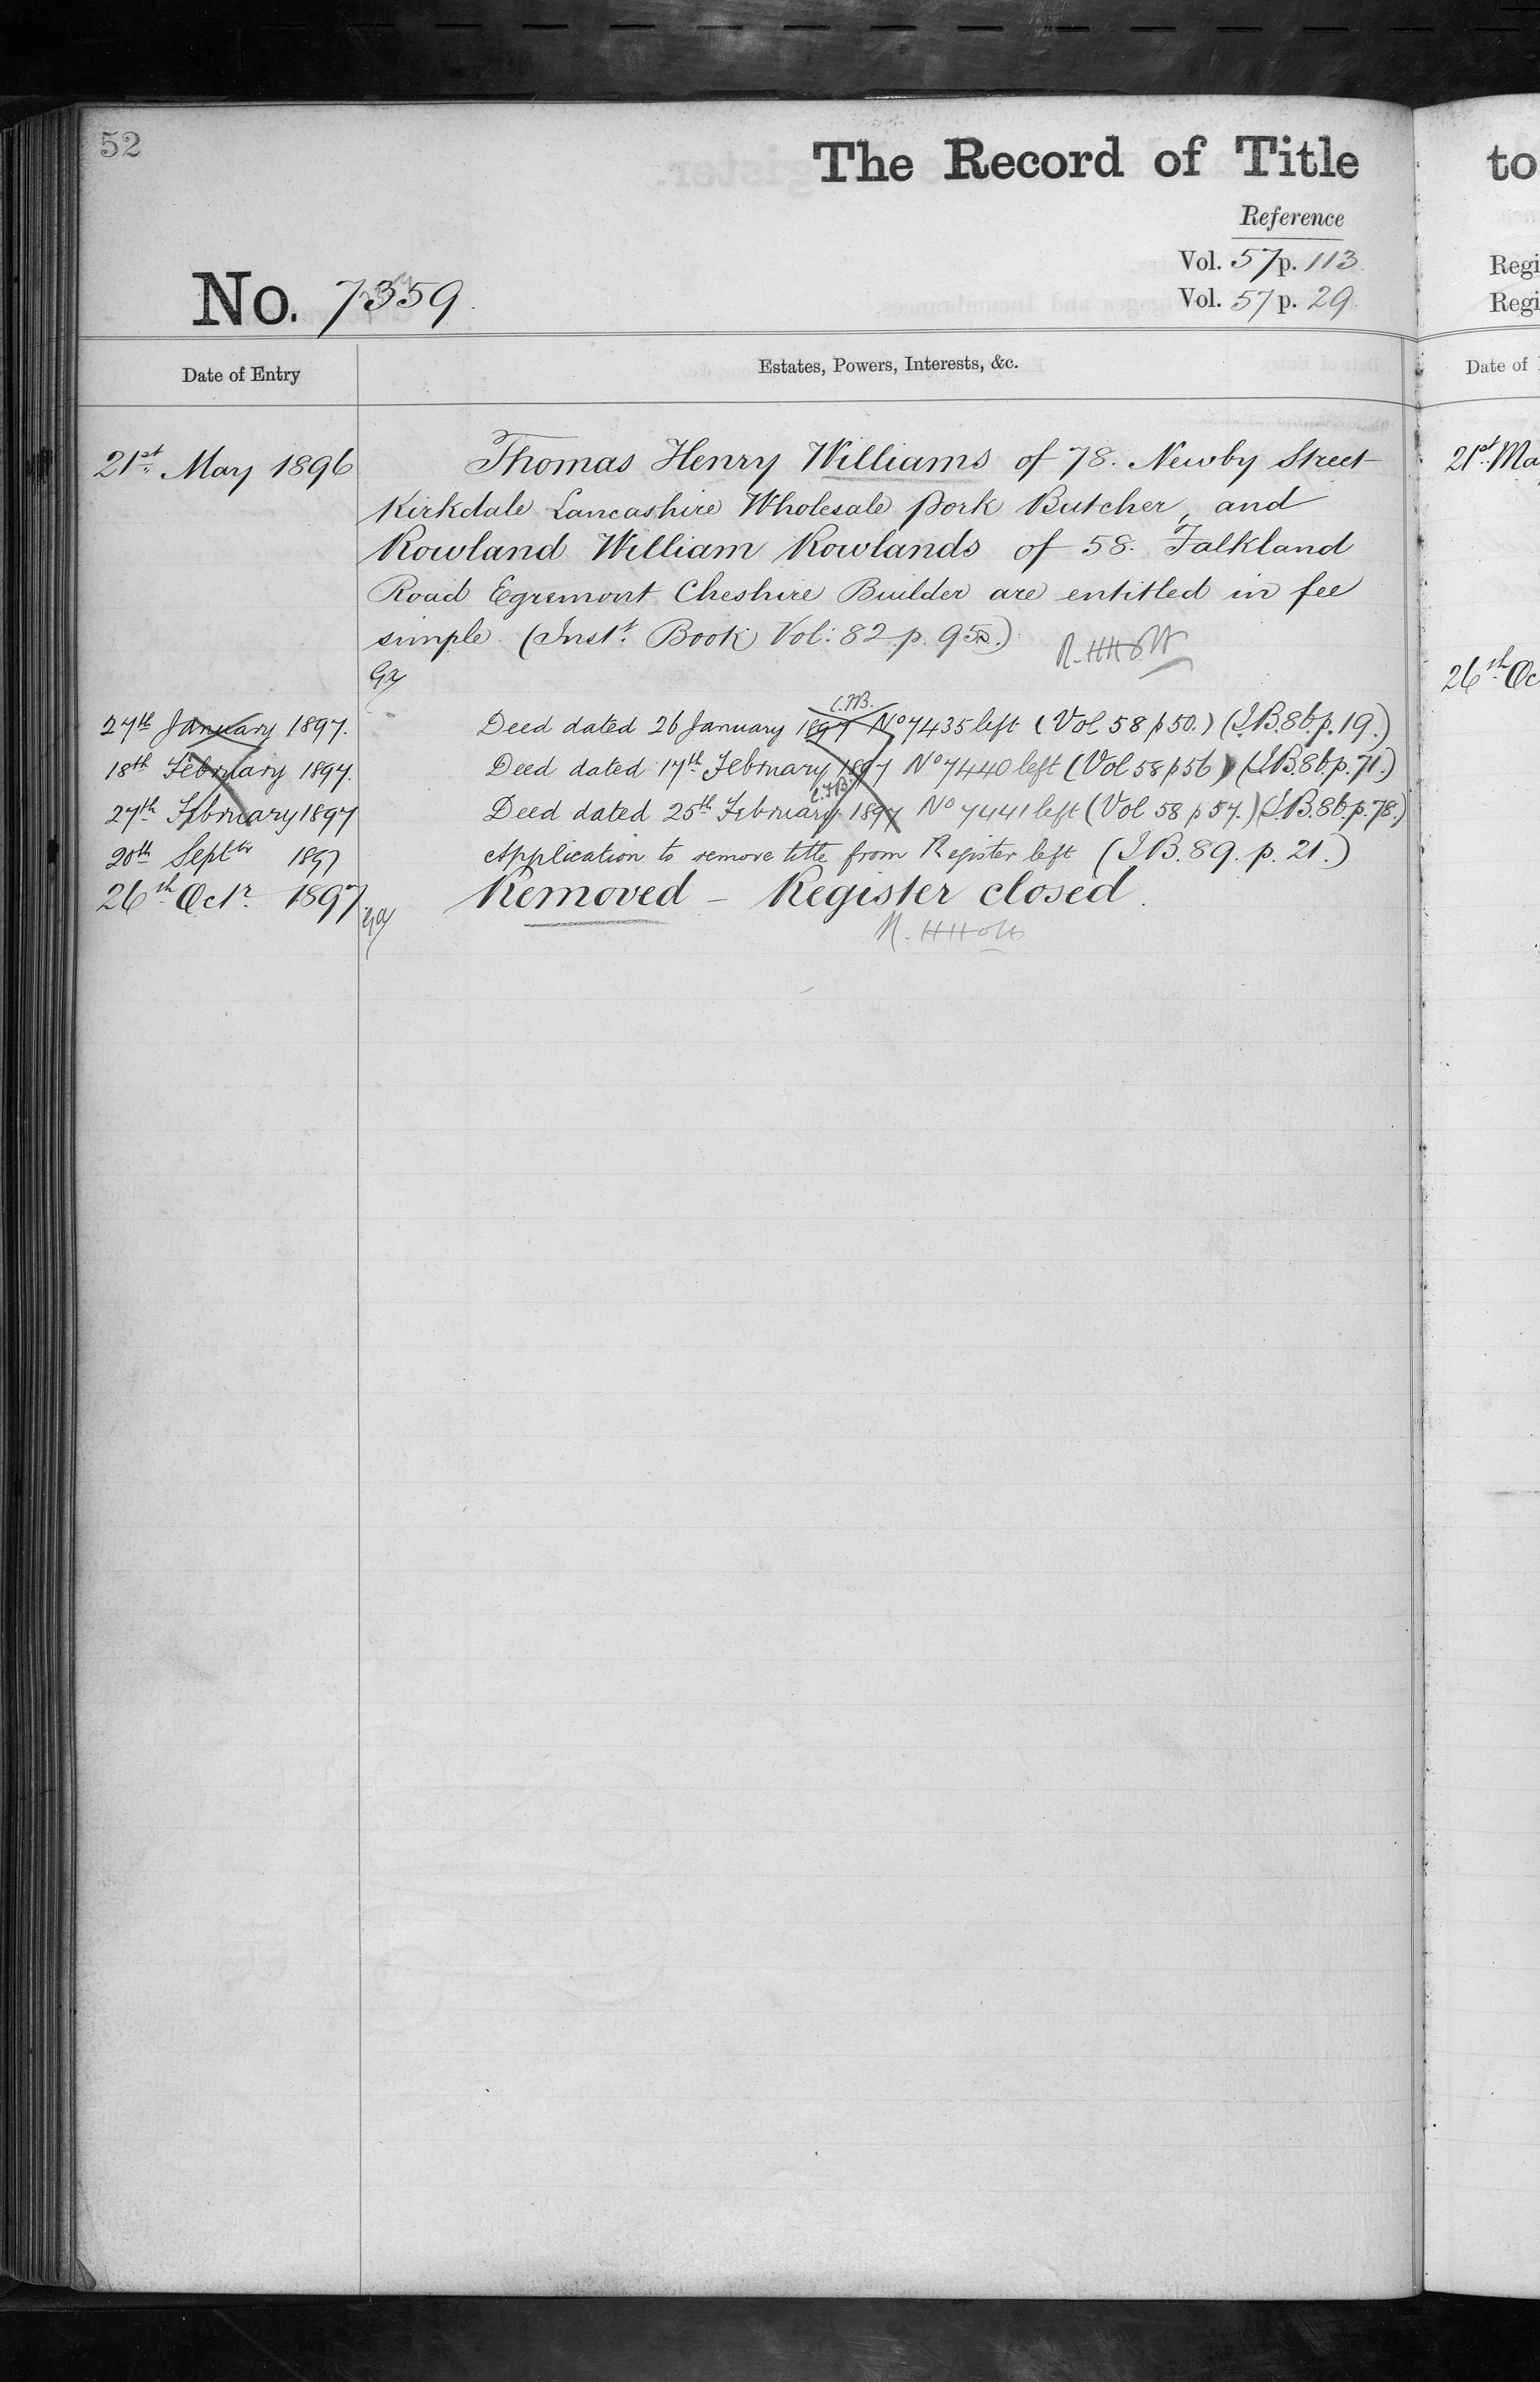 52
The Record of Title
Reference
Vol. 57 p. 113.
Vol. 57 p. 29.
No. 7359.
Date of Entry
Estates, Powers, Interests, &c.
21st. May 1896
Thomas Henry Williams of 78. Newby Street
Kirkdale Lancashire Wholesale Pork Butcher, and
Rowland William Rowlands of 58. Falkland
Road Egremont Cheshire Builder are entitled in fee
simple (Inst. Book Vol: 82. p. 95.)
27th January 1897.
Deed dated 26 January 1897 No 7435 left (Vol 58 p 50.) (I.B. 86. p. 19.)
18th February 1897.
Deed dated 17th February 1897 No 7440 left (Vol 58 p 56) (I.B. 86. p. 71.)
27th February 1897
Deed dated 25th February 1897 No 7441 left (Vol 58 p 57.) (I.B. 86. p. 78.)
20th Septbr 1897
Application to remove title from Register left (I B. 89. p. 21.)
26th Octr. 1897
Removed – Register closed.
to
Regi
Regi
Date of
21st Ma
26th Oc